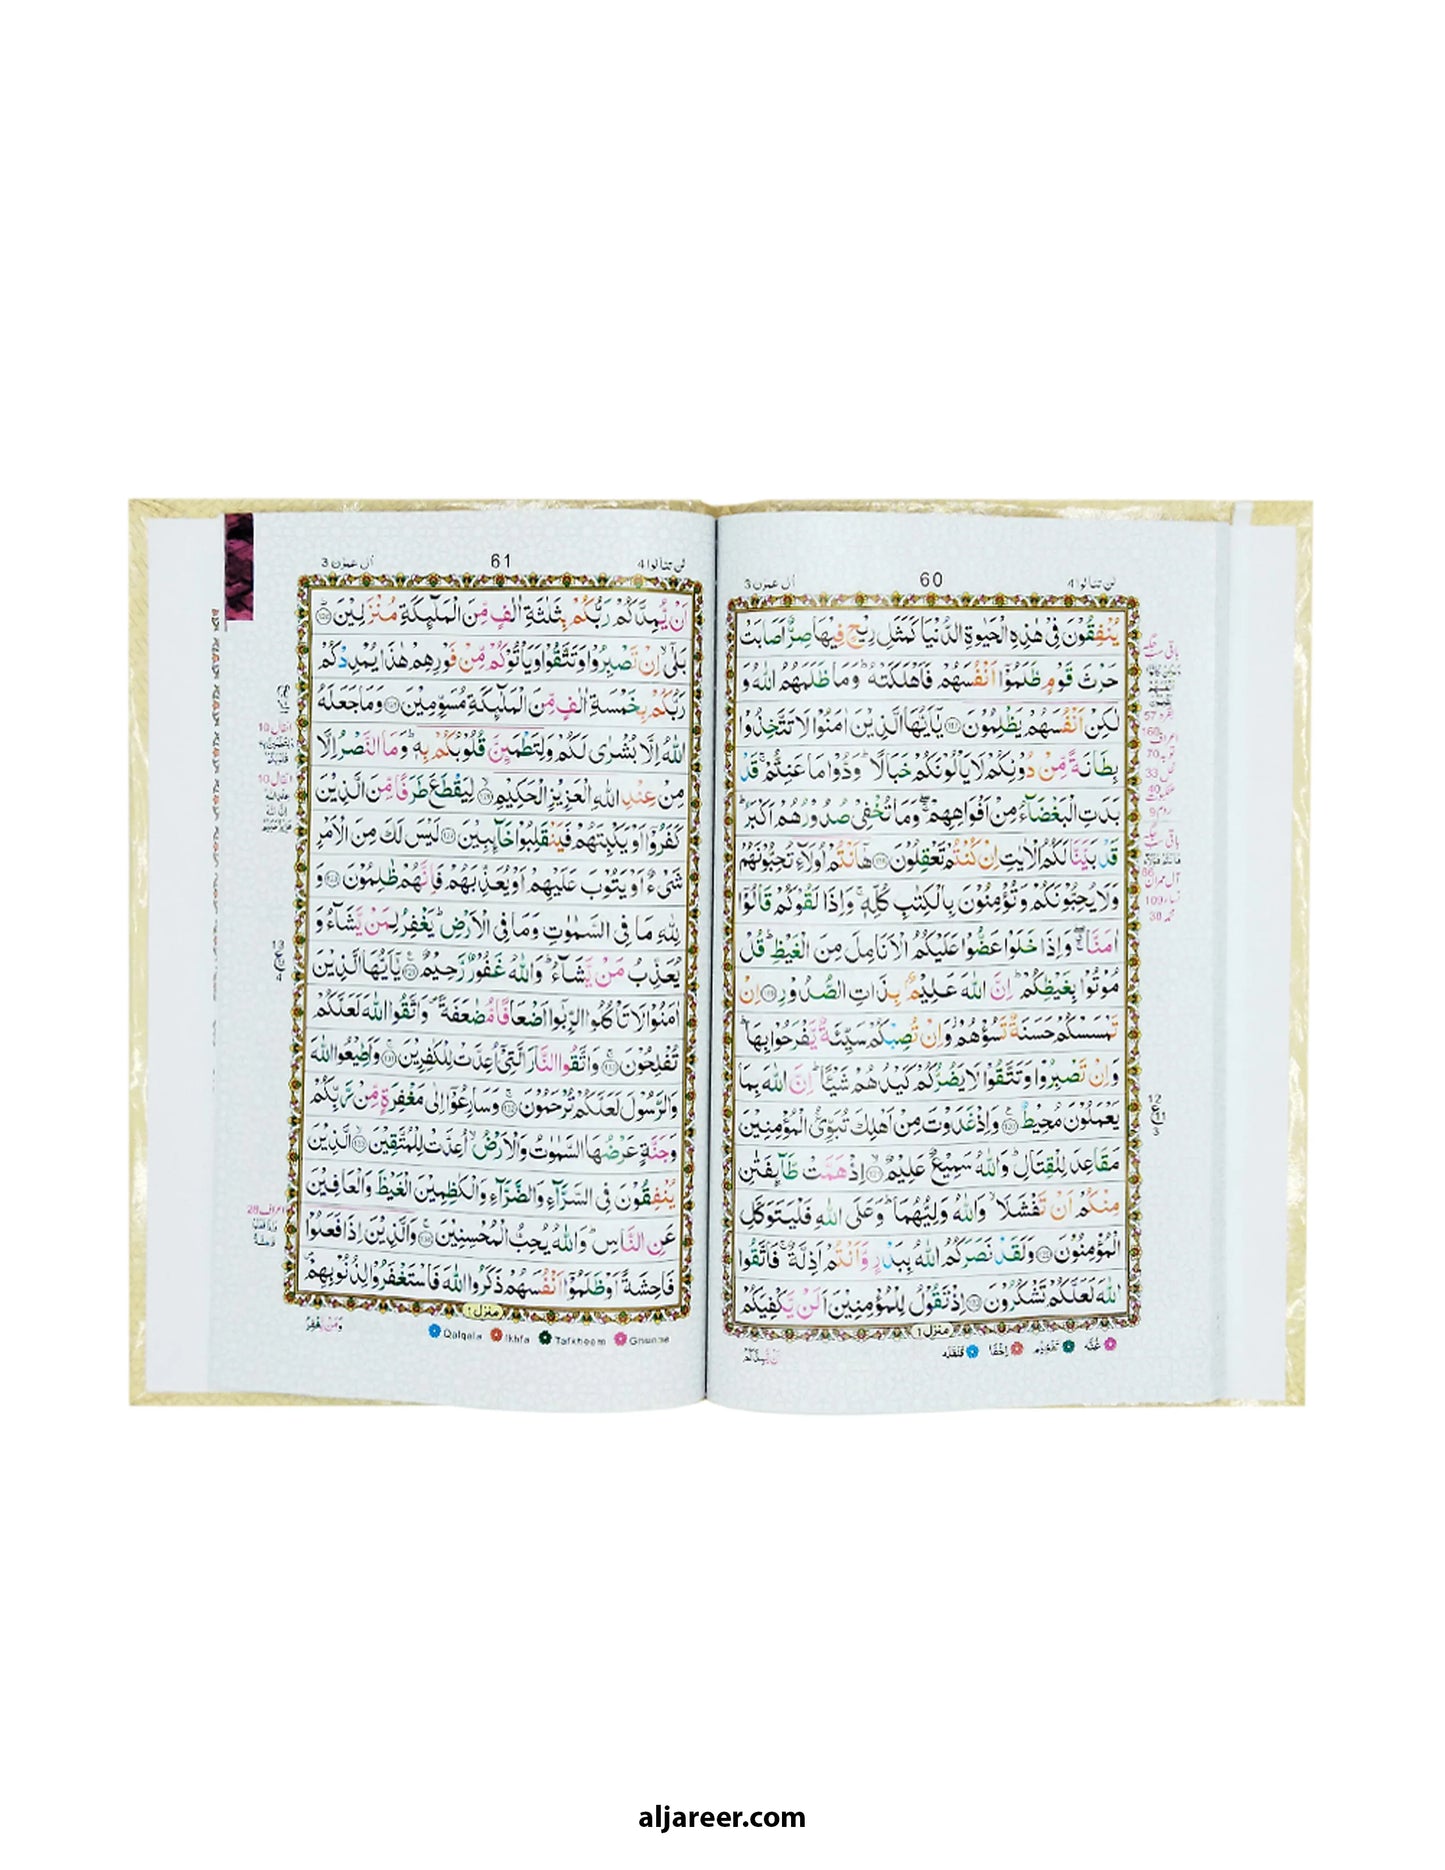 لن تنالوا 4
60
اٰل عمرٰن 3
يُنْفِقُوْنَ فِىْ هٰذِهِ الْحَيٰوةِ الدُّنْيَا كَمَثَلِ رِيْحٍ فِيْهَا صِرٌّ اَصَابَتْ
حَرْثَ قَوْمٍ ظَلَمُوْٓا اَنْفُسَهُمْ فَاَهْلَكَتْهُ ؕ وَمَا ظَلَمَهُمُ اللّٰهُ وَ
لٰكِنْ اَنْفُسَهُمْ يَظْلِمُوْنَ ۝ يٰۤاَيُّهَا الَّذِيْنَ اٰمَنُوْا لَا تَتَّخِذُوْا
بِطَانَةً مِّنْ دُوْنِكُمْ لَا يَاْلُوْنَكُمْ خَبَالًا ؕ وَدُّوْا مَا عَنِتُّمْ ۚ قَدْ
بَدَتِ الْبَغْضَآءُ مِنْ اَفْوَاهِهِمْ ۖۚ وَمَا تُخْفِىْ صُدُوْرُهُمْ اَكْبَرُ ؕ
قَدْ بَيَّنَّا لَكُمُ الْاٰيٰتِ اِنْ كُنْتُمْ تَعْقِلُوْنَ ۝ هٰۤاَنْتُمْ اُولَآءِ تُحِبُّوْنَهُمْ
وَلَا يُحِبُّوْنَكُمْ وَتُؤْمِنُوْنَ بِالْكِتٰبِ كُلِّهٖ ۚ وَاِذَا لَقُوْكُمْ قَالُوْٓا
اٰمَنَّا ۖۚ وَاِذَا خَلَوْا عَضُّوْا عَلَيْكُمُ الْاَنَامِلَ مِنَ الْغَيْظِ ؕ قُلْ
مُوْتُوْا بِغَيْظِكُمْ ؕ اِنَّ اللّٰهَ عَلِيْمٌۢ بِذَاتِ الصُّدُوْرِ ۝ اِنْ
تَمْسَسْكُمْ حَسَنَةٌ تَسُؤْهُمْ ۫ وَاِنْ تُصِبْكُمْ سَيِّئَةٌ يَّفْرَحُوْا بِهَا ؕ
وَاِنْ تَصْبِرُوْا وَتَتَّقُوْا لَا يَضُرُّكُمْ كَيْدُهُمْ شَيْئًا ؕ اِنَّ اللّٰهَ بِمَا
يَعْمَلُوْنَ مُحِيْطٌ ۝ وَاِذْ غَدَوْتَ مِنْ اَهْلِكَ تُبَوِّئُ الْمُؤْمِنِيْنَ
مَقَاعِدَ لِلْقِتَالِ ؕ وَاللّٰهُ سَمِيْعٌ عَلِيْمٌ ۝ اِذْ هَمَّتْ طَّآئِفَتٰنِ
مِنْكُمْ اَنْ تَفْشَلَا ۙ وَاللّٰهُ وَلِيُّهُمَا ؕ وَعَلَى اللّٰهِ فَلْيَتَوَكَّلِ
الْمُؤْمِنُوْنَ ۝ وَلَقَدْ نَصَرَكُمُ اللّٰهُ بِبَدْرٍ وَّاَنْتُمْ اَذِلَّةٌ ۚ فَاتَّقُوا
اللّٰهَ لَعَلَّكُمْ تَشْكُرُوْنَ ۝ اِذْ تَقُوْلُ لِلْمُؤْمِنِيْنَ اَلَنْ يَّكْفِيَكُمْ
منزل ١
غُنَّه تَفْخِيْم اِخْفَا قَلْقَلَه
لن تنالوا 4
61
اٰل عمرٰن 3
اَنْ يُّمِدَّكُمْ رَبُّكُمْ بِثَلٰثَةِ اٰلٰفٍ مِّنَ الْمَلٰٓئِكَةِ مُنْزَلِيْنَ ۝
بَلٰٓى ۙ اِنْ تَصْبِرُوْا وَتَتَّقُوْا وَيَاْتُوْكُمْ مِّنْ فَوْرِهِمْ هٰذَا يُمْدِدْكُمْ
رَبُّكُمْ بِخَمْسَةِ اٰلٰفٍ مِّنَ الْمَلٰٓئِكَةِ مُسَوِّمِيْنَ ۝ وَمَا جَعَلَهُ
اللّٰهُ اِلَّا بُشْرٰى لَكُمْ وَلِتَطْمَئِنَّ قُلُوْبُكُمْ بِهٖ ؕ وَمَا النَّصْرُ اِلَّا
مِنْ عِنْدِ اللّٰهِ الْعَزِيْزِ الْحَكِيْمِ ۝ لِيَقْطَعَ طَرَفًا مِّنَ الَّذِيْنَ
كَفَرُوْٓا اَوْ يَكْبِتَهُمْ فَيَنْقَلِبُوْا خَآئِبِيْنَ ۝ لَيْسَ لَكَ مِنَ الْاَمْرِ
شَىْءٌ اَوْ يَتُوْبَ عَلَيْهِمْ اَوْ يُعَذِّبَهُمْ فَاِنَّهُمْ ظٰلِمُوْنَ ۝ وَ
لِلّٰهِ مَا فِى السَّمٰوٰتِ وَمَا فِى الْاَرْضِ ؕ يَغْفِرُ لِمَنْ يَّشَآءُ وَ
يُعَذِّبُ مَنْ يَّشَآءُ ؕ وَاللّٰهُ غَفُوْرٌ رَّحِيْمٌ ۝ يٰۤاَيُّهَا الَّذِيْنَ
اٰمَنُوْا لَا تَاْكُلُوا الرِّبٰٓوا اَضْعَافًا مُّضٰعَفَةً ۪ وَاتَّقُوا اللّٰهَ لَعَلَّكُمْ
تُفْلِحُوْنَ ۝ وَاتَّقُوا النَّارَ الَّتِىْٓ اُعِدَّتْ لِلْكٰفِرِيْنَ ۝ وَاَطِيْعُوا اللّٰهَ
وَالرَّسُوْلَ لَعَلَّكُمْ تُرْحَمُوْنَ ۝ وَسَارِعُوْٓا اِلٰى مَغْفِرَةٍ مِّنْ رَّبِّكُمْ
وَجَنَّةٍ عَرْضُهَا السَّمٰوٰتُ وَالْاَرْضُ ۙ اُعِدَّتْ لِلْمُتَّقِيْنَ ۝ الَّذِيْنَ
يُنْفِقُوْنَ فِى السَّرَّآءِ وَالضَّرَّآءِ وَالْكٰظِمِيْنَ الْغَيْظَ وَالْعَافِيْنَ
عَنِ النَّاسِ ؕ وَاللّٰهُ يُحِبُّ الْمُحْسِنِيْنَ ۝ وَالَّذِيْنَ اِذَا فَعَلُوْا
فَاحِشَةً اَوْ ظَلَمُوْٓا اَنْفُسَهُمْ ذَكَرُوا اللّٰهَ فَاسْتَغْفَرُوْا لِذُنُوْبِهِمْ
منزل ١
Qalqala Ikhfa Tafkheem Ghunna
aljareer.com